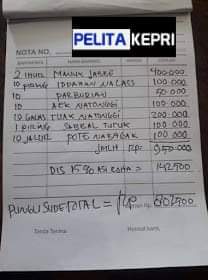 PELITA
KEPRI
NOTA NO.
2 IHUR MANUK JARGO 400.000
10 PIRING INDAHAN NALASS 100.000
10 PARBURIAN 50.000
10 AEK NATONGGI 100.000
10 GALAS TUAK NATONGGI 200.000
1 PIRING SABEAL TUTUK 100.000
10 POTE NABAGAK 100.000
JMLH RP: 950.000
DIS 15% ASIROHA = 142.500
PUNGU SUDE TOTAL = Rp 807.500
Tanda Terima
Hormat kami,